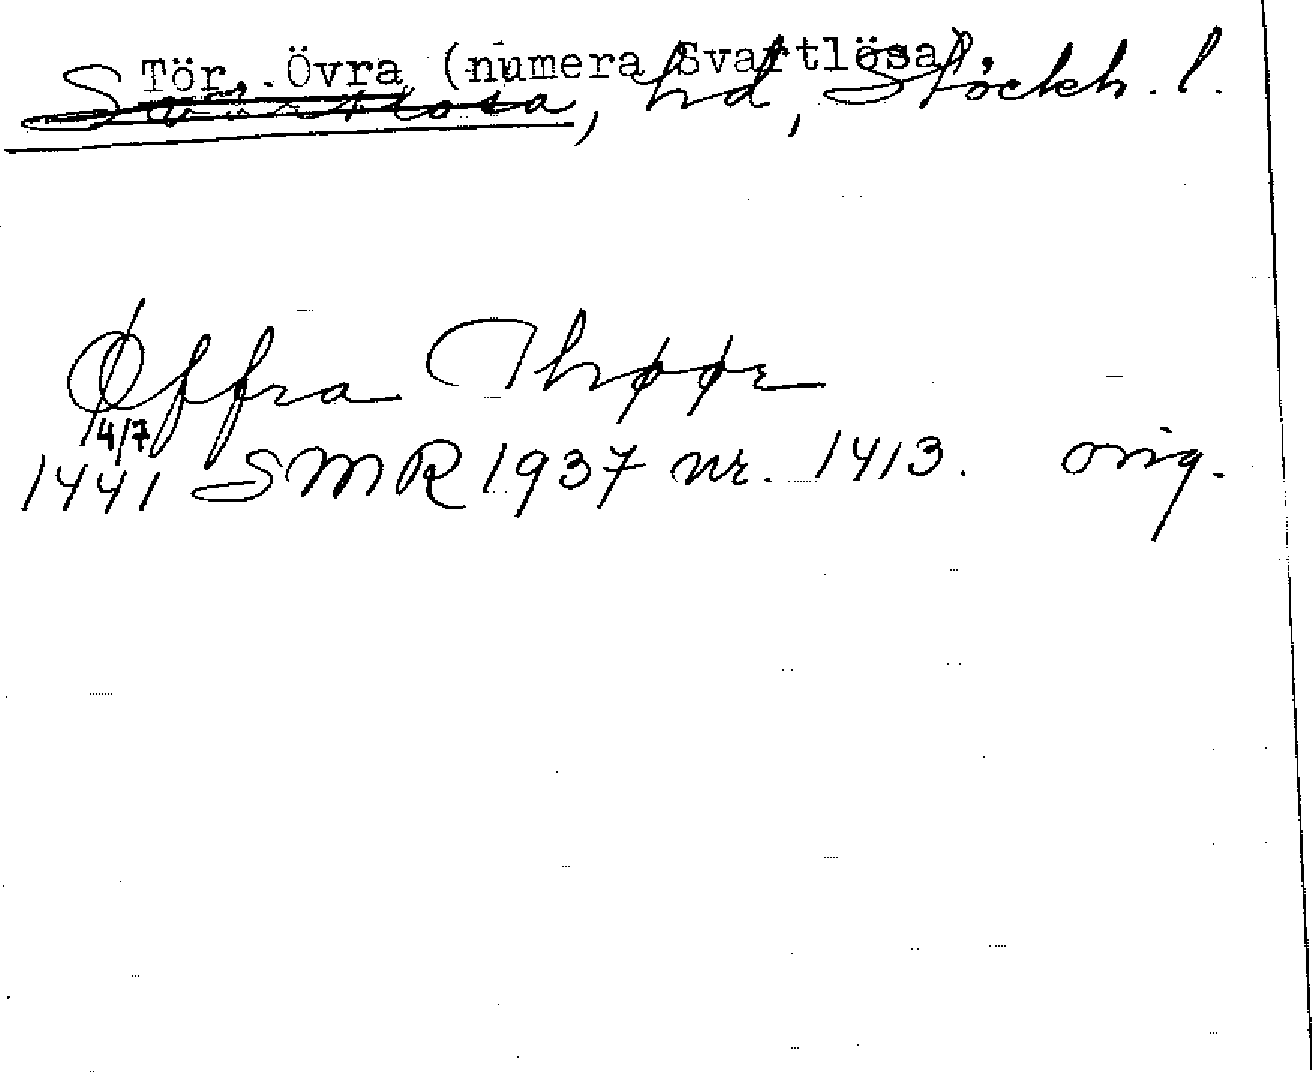 Tör, Övra (numera Svartlösa),
Svartlösa, hd, Stockh. l.
Øffra Thøør
4/7
1441 SMR 1937 nr. 1413. orig.